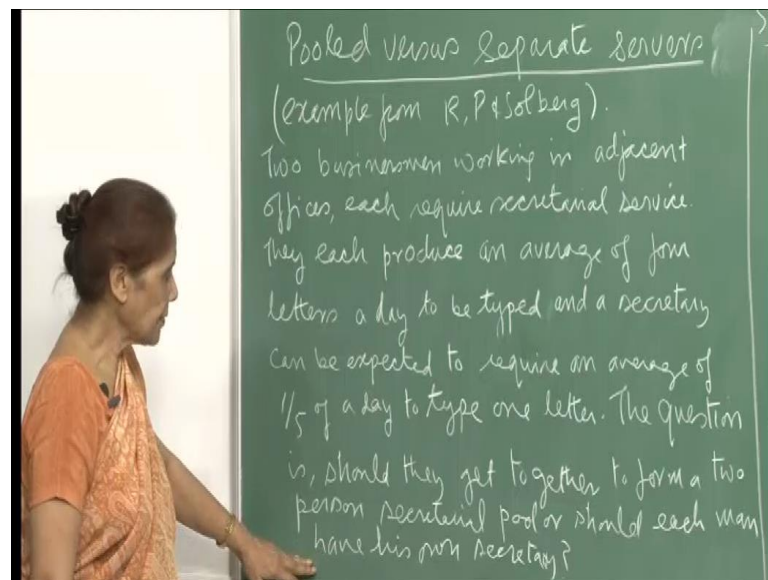 Pooled versus separate servers
(example from R, P & Solberg).
Two businessmen working in adjacent
offices, each require secretarial service.
They each produce an average of four
letters a day to be typed and a secretary
can be expected to require an average of
1/5 of a day to type one letter. The question
is, should they get together to form a two
person secretarial pool or should each man
have his own secretary?